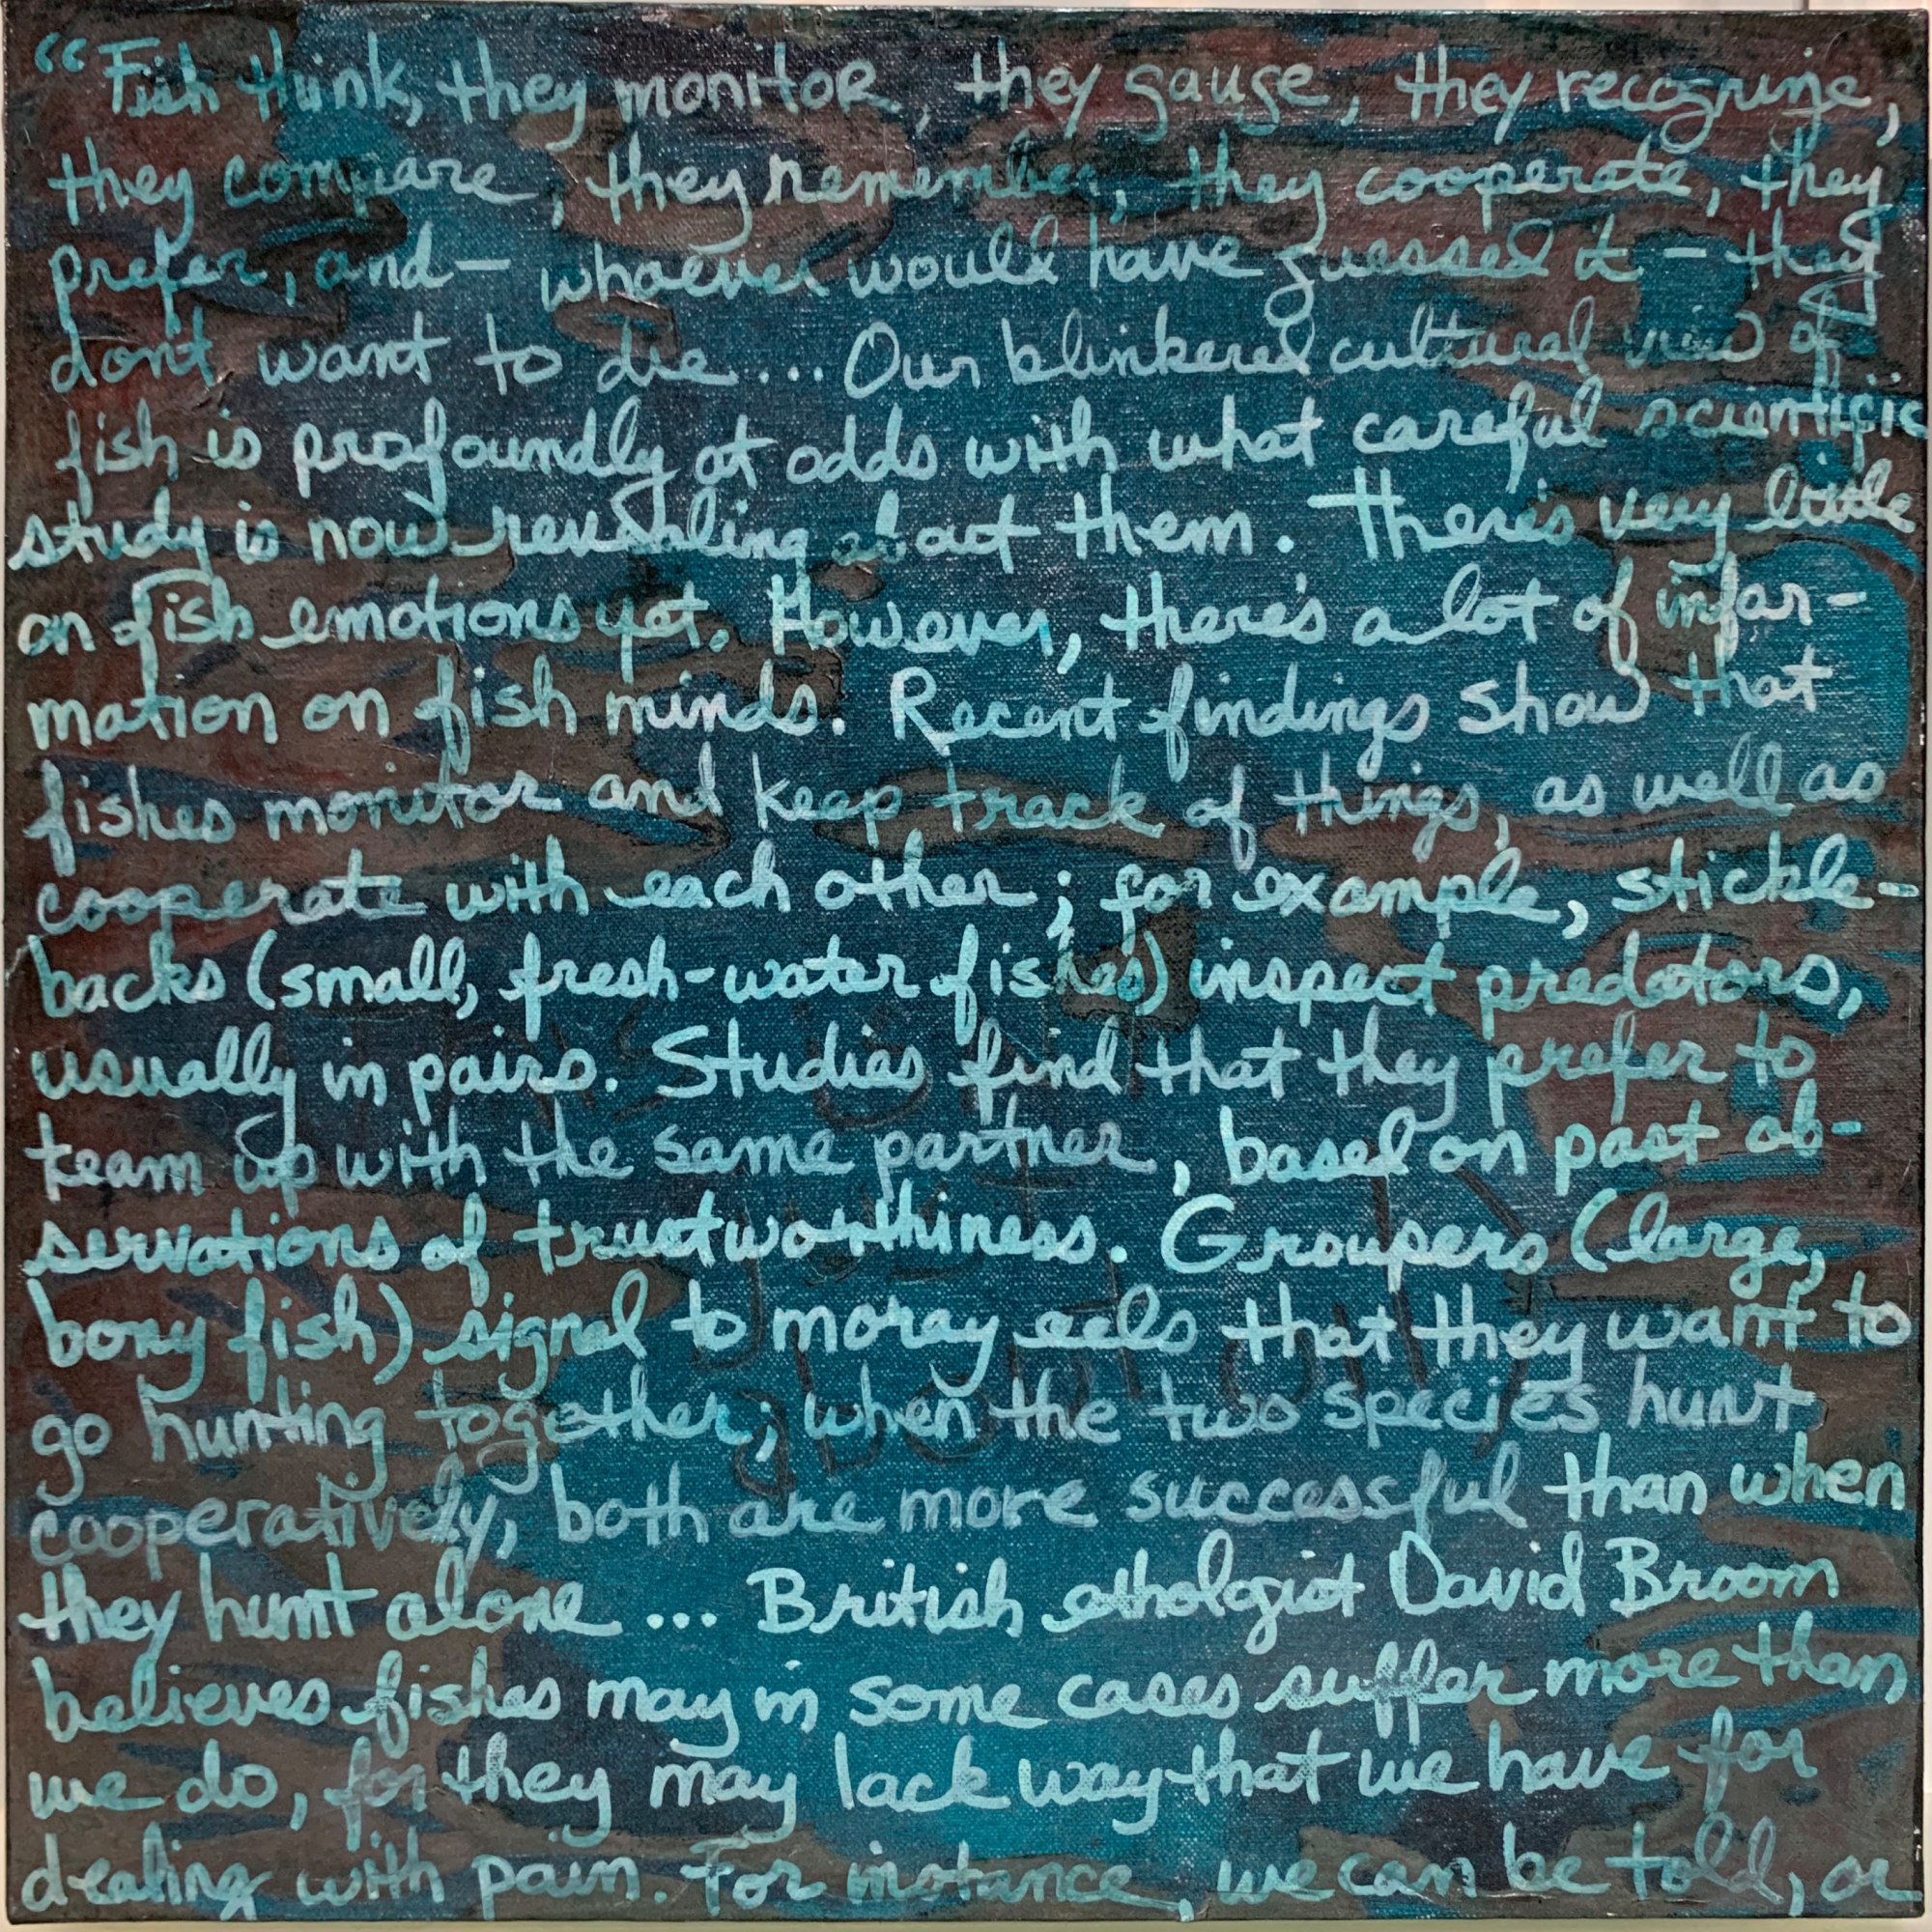 “Fish think, they monitor, they gauge, they recognize,
they compare, they remember, they cooperate, they
prefer, and — whoever would have guessed it — they
dont want to die... Our blinkered cultural view of
fish is profoundly at odds with what careful scientific
study is now revealing about them. There's very little
on fish emotions yet. However, there's a lot of infor-
mation on fish minds. Recent findings show that
fishes monitor and keep track of things, as well as
cooperate with each other; for example, stickle-
backs (small, fresh-water fishes) inspect predators,
usually in pairs. Studies find that they prefer to
team up with the same partner, based on past ob-
servations of trustworthiness. Groupers (large,
bony fish) signal to moray eels that they want to
go hunting together; when the two species hunt
cooperatively, both are more successful than when
they hunt alone ... British ethologist David Broom
believes fishes may in some cases suffer more than
we do, for they may lack way that we have for
dealing with pain. For instance, we can be told, or